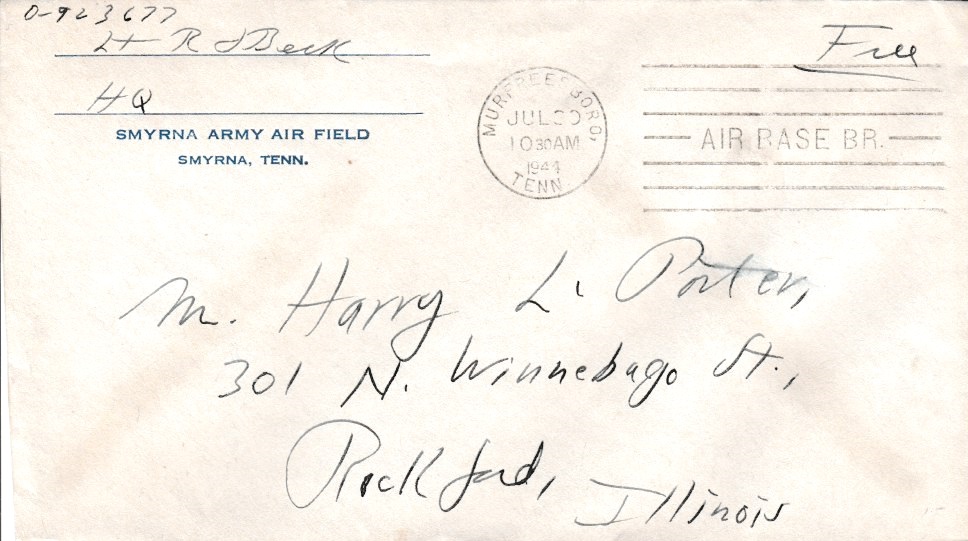 O-923677
Lt R J Beck
HQ
SMYRNA ARMY AIR FIELD
SMYRNA, TENN.
MURFREESBORO,
JUL 30
10 30 AM
1944
TENN
Free
AIR BASE BR.
Mr. Harry L. Porter,
301 N. Winnebago St.,
Rockford,
Illinois